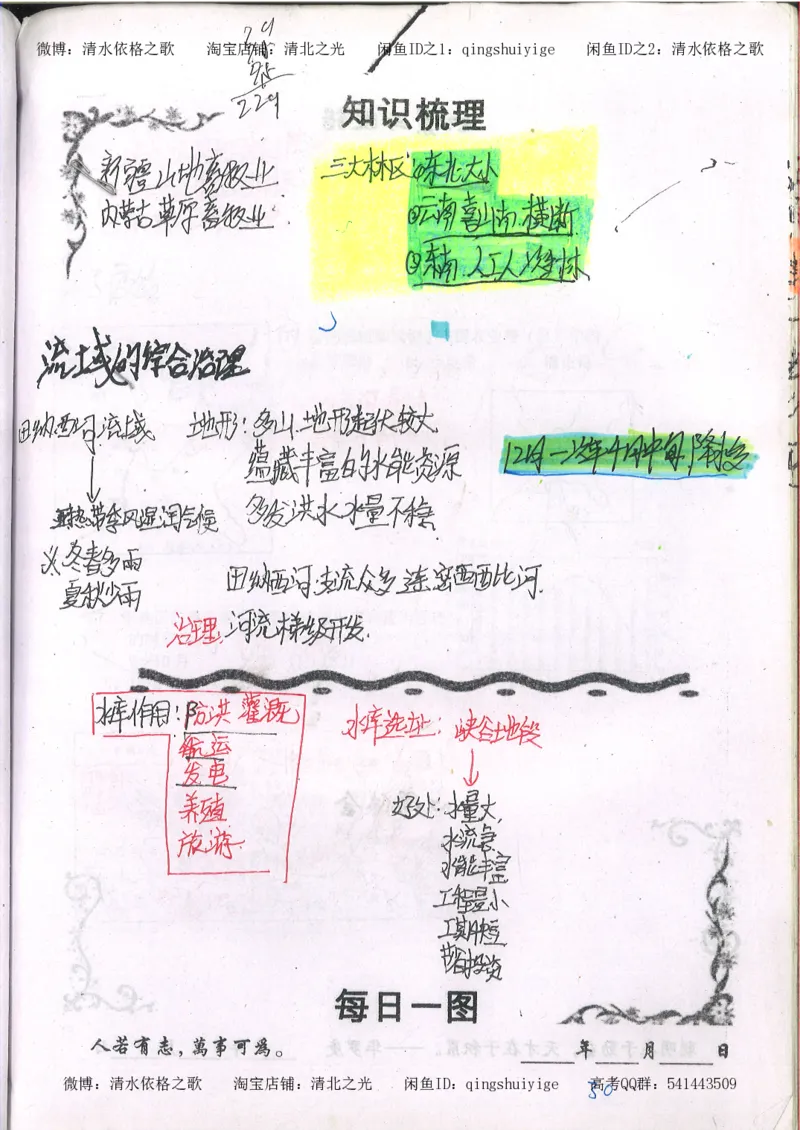 微博：清水依格之歌 淘宝店铺：清北之光 闲鱼ID之1：qingshuiyige 闲鱼ID之2：清水依格之歌
229
知识梳理
新疆山地畜牧业
内蒙古草原畜牧业
三大林区 ①东北大小
②云南喜山南.横断
③东南.人工人次生林
流域的综合治理
田纳西河流域
地形：多山.地形起伏较大
蕴藏丰富的水能资源
多发洪水.水量不稳
12月－次年4月中旬,降技多
亚热带季风湿润气候
冬春多雨
夏秋少雨
田纳西河.支流众多.连密西西比河.
治理.河流梯级开发.
水库作用：防洪 灌溉
航运
发电
养殖
旅游.
水库选址：峡谷地段
好处：水量大,
水流急
水能丰富
工程量小
工期短
节省投资
每日一图
人若有志，萬事可為。
年 月 日
微博：清水依格之歌 淘宝店铺：清北之光 闲鱼ID：qingshuiyige 高考QQ群：541443509
50